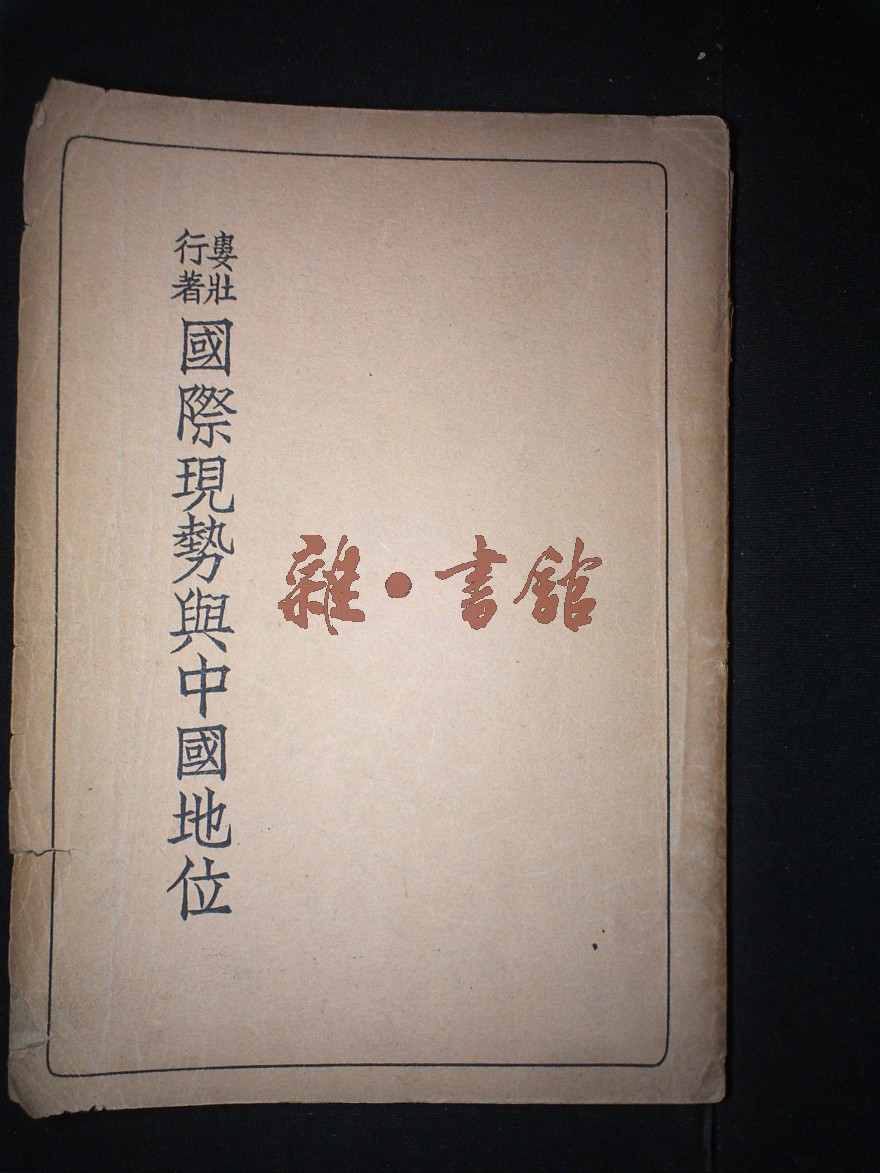 婁壯
行著
國際現勢與中國地位
雜·書館